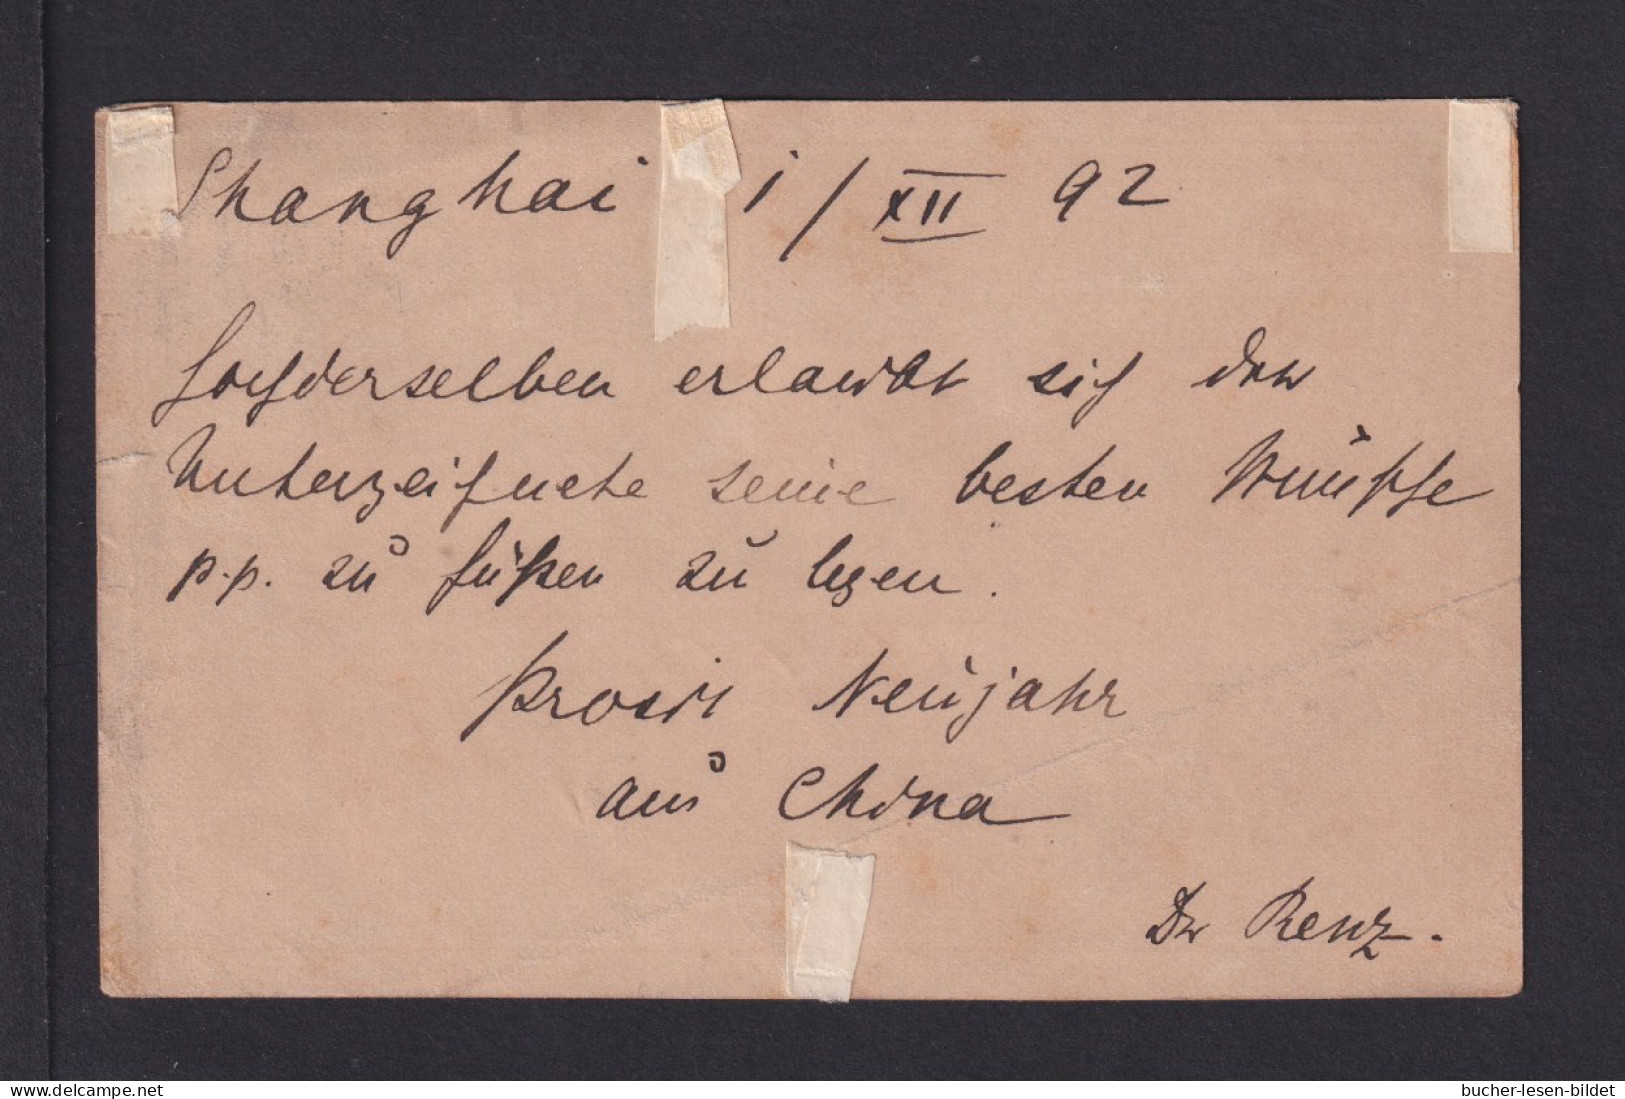 Shanghai 1/XII 92
Hochderselben erlaubt sich der
Unterzeichnete seine besten Wünsche
p.p. zu füßen zu legen.
Prosit Neujahr
aus China
Dr Renz.
delcampe.net
bucher-lesen-bildet